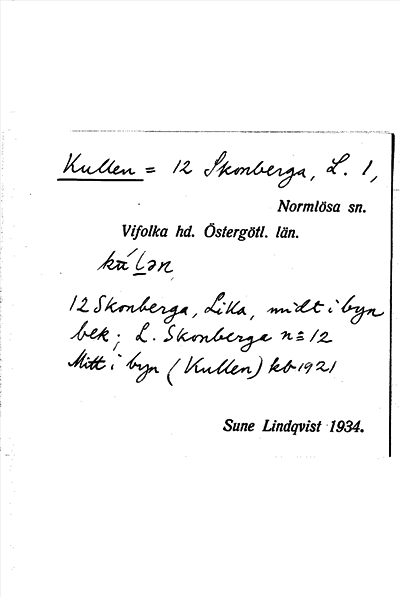 Kullen = 12 Skonberga, L. 1,
Normlösa sn.
Vifolka hd. Östergötl. län.
12 Skonberga, Lilla, midt i byn
bek; L. Skonberga n:o 12
Mitt i byn (Kullen) kb 1921
Sune Lindqvist 1934.